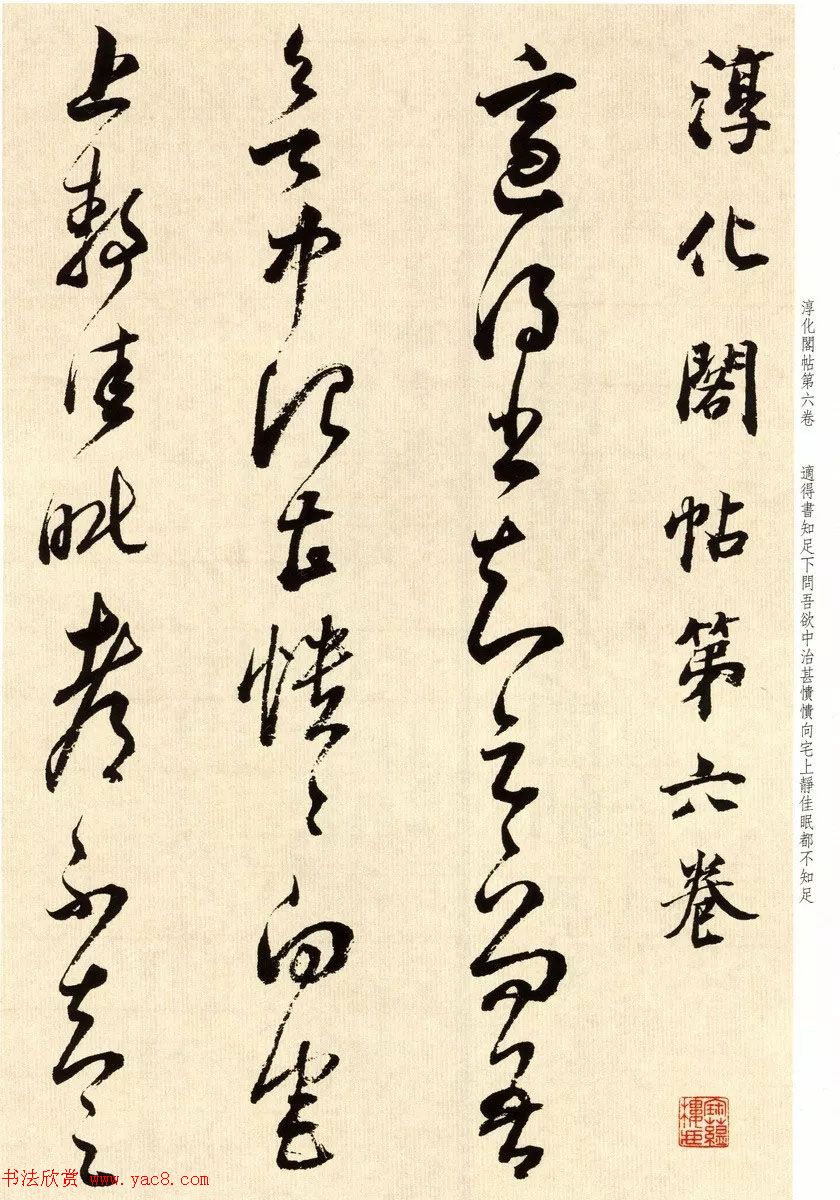 淳化閣帖第六卷
適得書知足下問吾
欲中冷甚憒憒向宅
上靜佳眠都不知足
淳化閣帖第六卷 適得書知足下問吾欲中治甚憒憒向宅上靜佳眠都不知足
书法欣赏 www.yac8.com